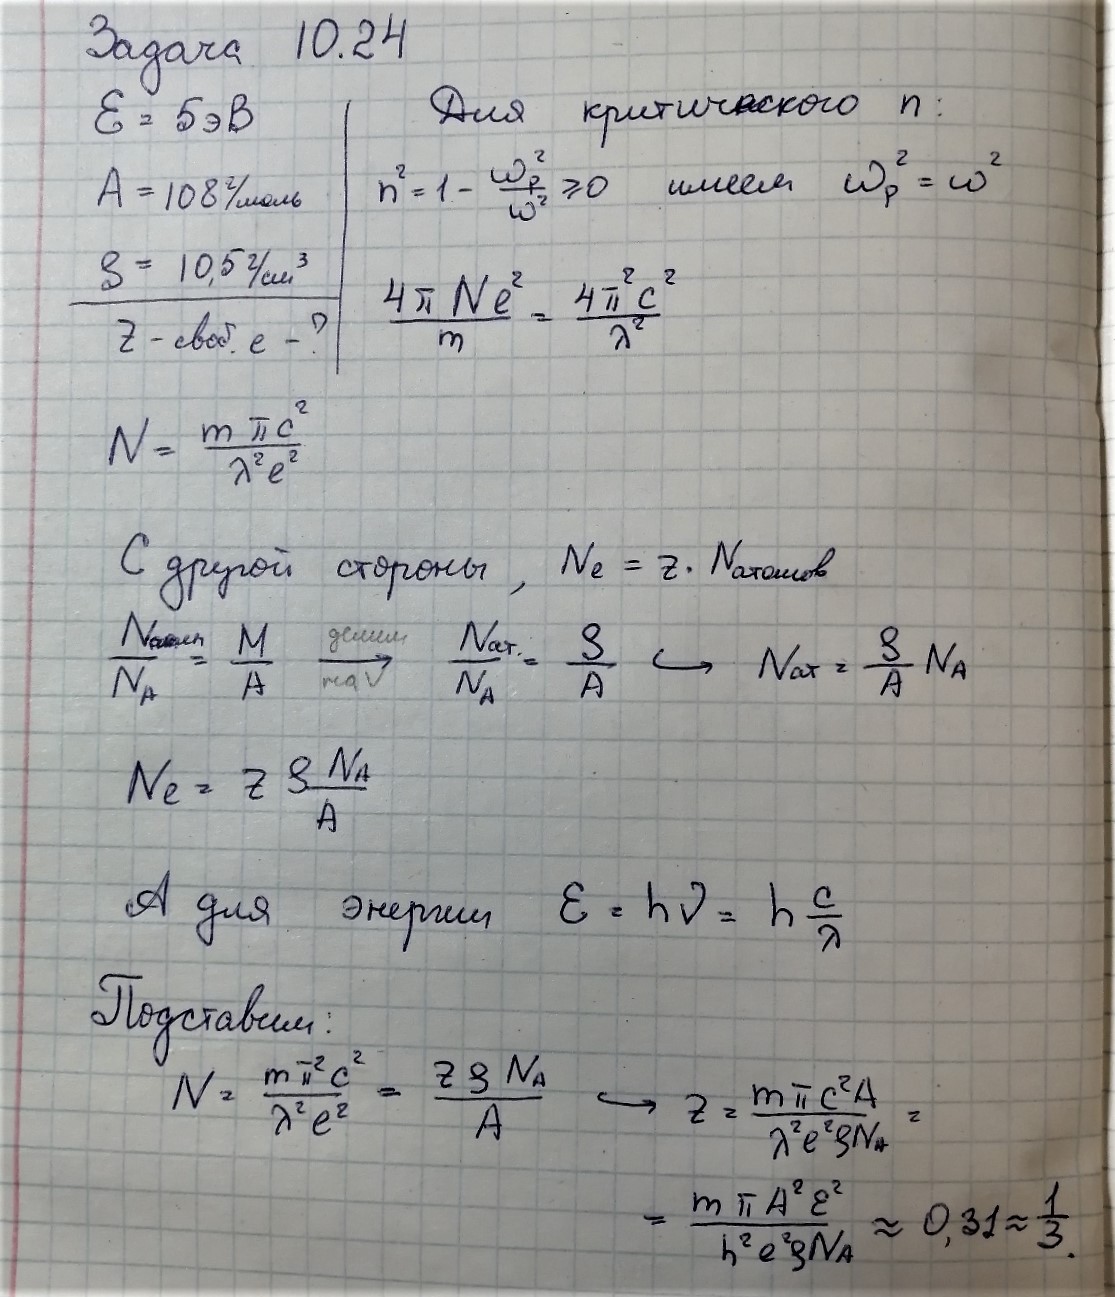 Задача 10.24
Ɛ = 5 эВ
A = 108 г/моль
ρ = 10,5 г/см³
z - своб. e - ?
Для критического n:
n² = 1 - ωp²/ω² ⩾ 0 имеем ωp² = ω²
4π Ne²/m = 4π²c²/λ²
N = mπc²/λ²e²
С другой стороны, Ne = z · Nатомов
Nатом/NA = M/A делим на V → Nат./NA = ρ/A ↪ Nат = ρ/A NA
Ne = z ρ NA/A
А для энергии Ɛ = hν = h c/λ
Подставим:
N = mπ²c²/λ²e² = zρNA/A ↪ z = mπc²A/λ²e²ρNA =
= mπA²Ɛ²/h²e²ρNA ≈ 0,31 ≈ 1/3.